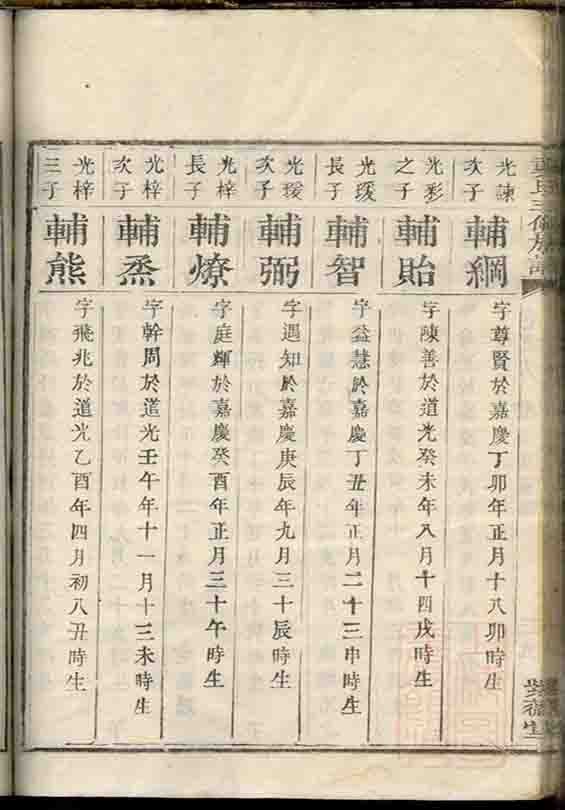 光諫
次子
輔綱
字尊賢於嘉慶丁卯年正月十八卯時生
光彩
之子
輔貽
字陳善於道光癸未年八月十四戌時生
光瑗
長子
輔智
字益慧於嘉慶丁丑年正月二十三申時生
光瑗
次子
輔弼
字遇知於嘉慶庚辰年九月三十辰時生
光梓
長子
輔燎
字庭輝於嘉慶癸酉年正月三十午時生
光梓
次子
輔烝
字幹周於道光壬午年十一月十三未時生
光梓
三子
輔熊
字飛兆於道光乙酉年四月初八丑時生